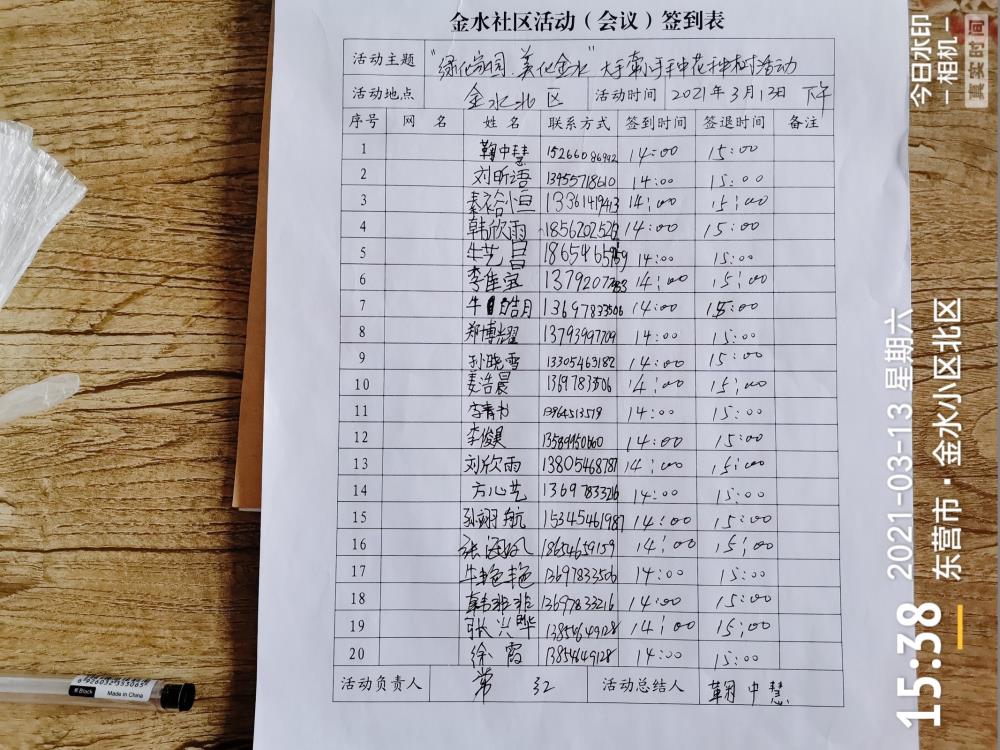 金水社区活动（会议）签到表
活动主题 "绿化家园、美化金水"大手牵小手种花种树活动
活动地点 金水北区 活动时间 2021年3月13日 下午
序号 网 名 姓 名 联系方式 签到时间 签退时间 备注
1 鞠中慧 15266086942 14:00 15:00
2 刘昕语 13455718610 14:00 15:00
3 秦裕恒 13361419413 14:00 15:00
4 韩欣雨 14:00 15:00
5 牛艺昌 14:00 15:00
6 李佳宝 14:00 15:00
7 牛皓月 13697833506 14:00 15:00
8 郑博耀 13793997709 14:00 15:00
9 孙晓雪 13305463182 14:00 15:00
10 姜浩晨 1369783506 14:00 15:00
11 14:00 15:00
12 李俊昊 14:00 15:00
13 刘欣雨 13805468787 14:00 15:00
14 方心艺 13697833216 14:00 15:00
15 孙翊航 15345461987 14:00 15:00
16 18654659159 14:00 15:00
17 牛艳艳 13697833506 14:00 15:00
18 韩非非 13697833216 14:00 15:00
19 张兴晔 13854649128 14:00 15:00
20 徐霞 13854649128 14:00 15:00
活动负责人 常红 活动总结人 鞠中慧
6926032353065
Block Made in China
今日水印
相机
真实时间
15:38 2021-03-13 星期六
东营市·金水小区北区